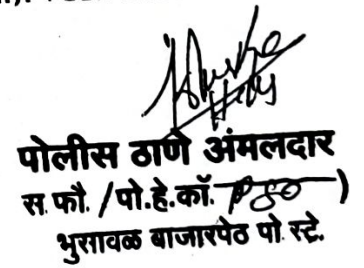 पोलीस ठाणे अंमलदार
स.फौ./पो.हे.कॉ. PSO )
भुसावळ बाजारपेठ पो.स्टे.